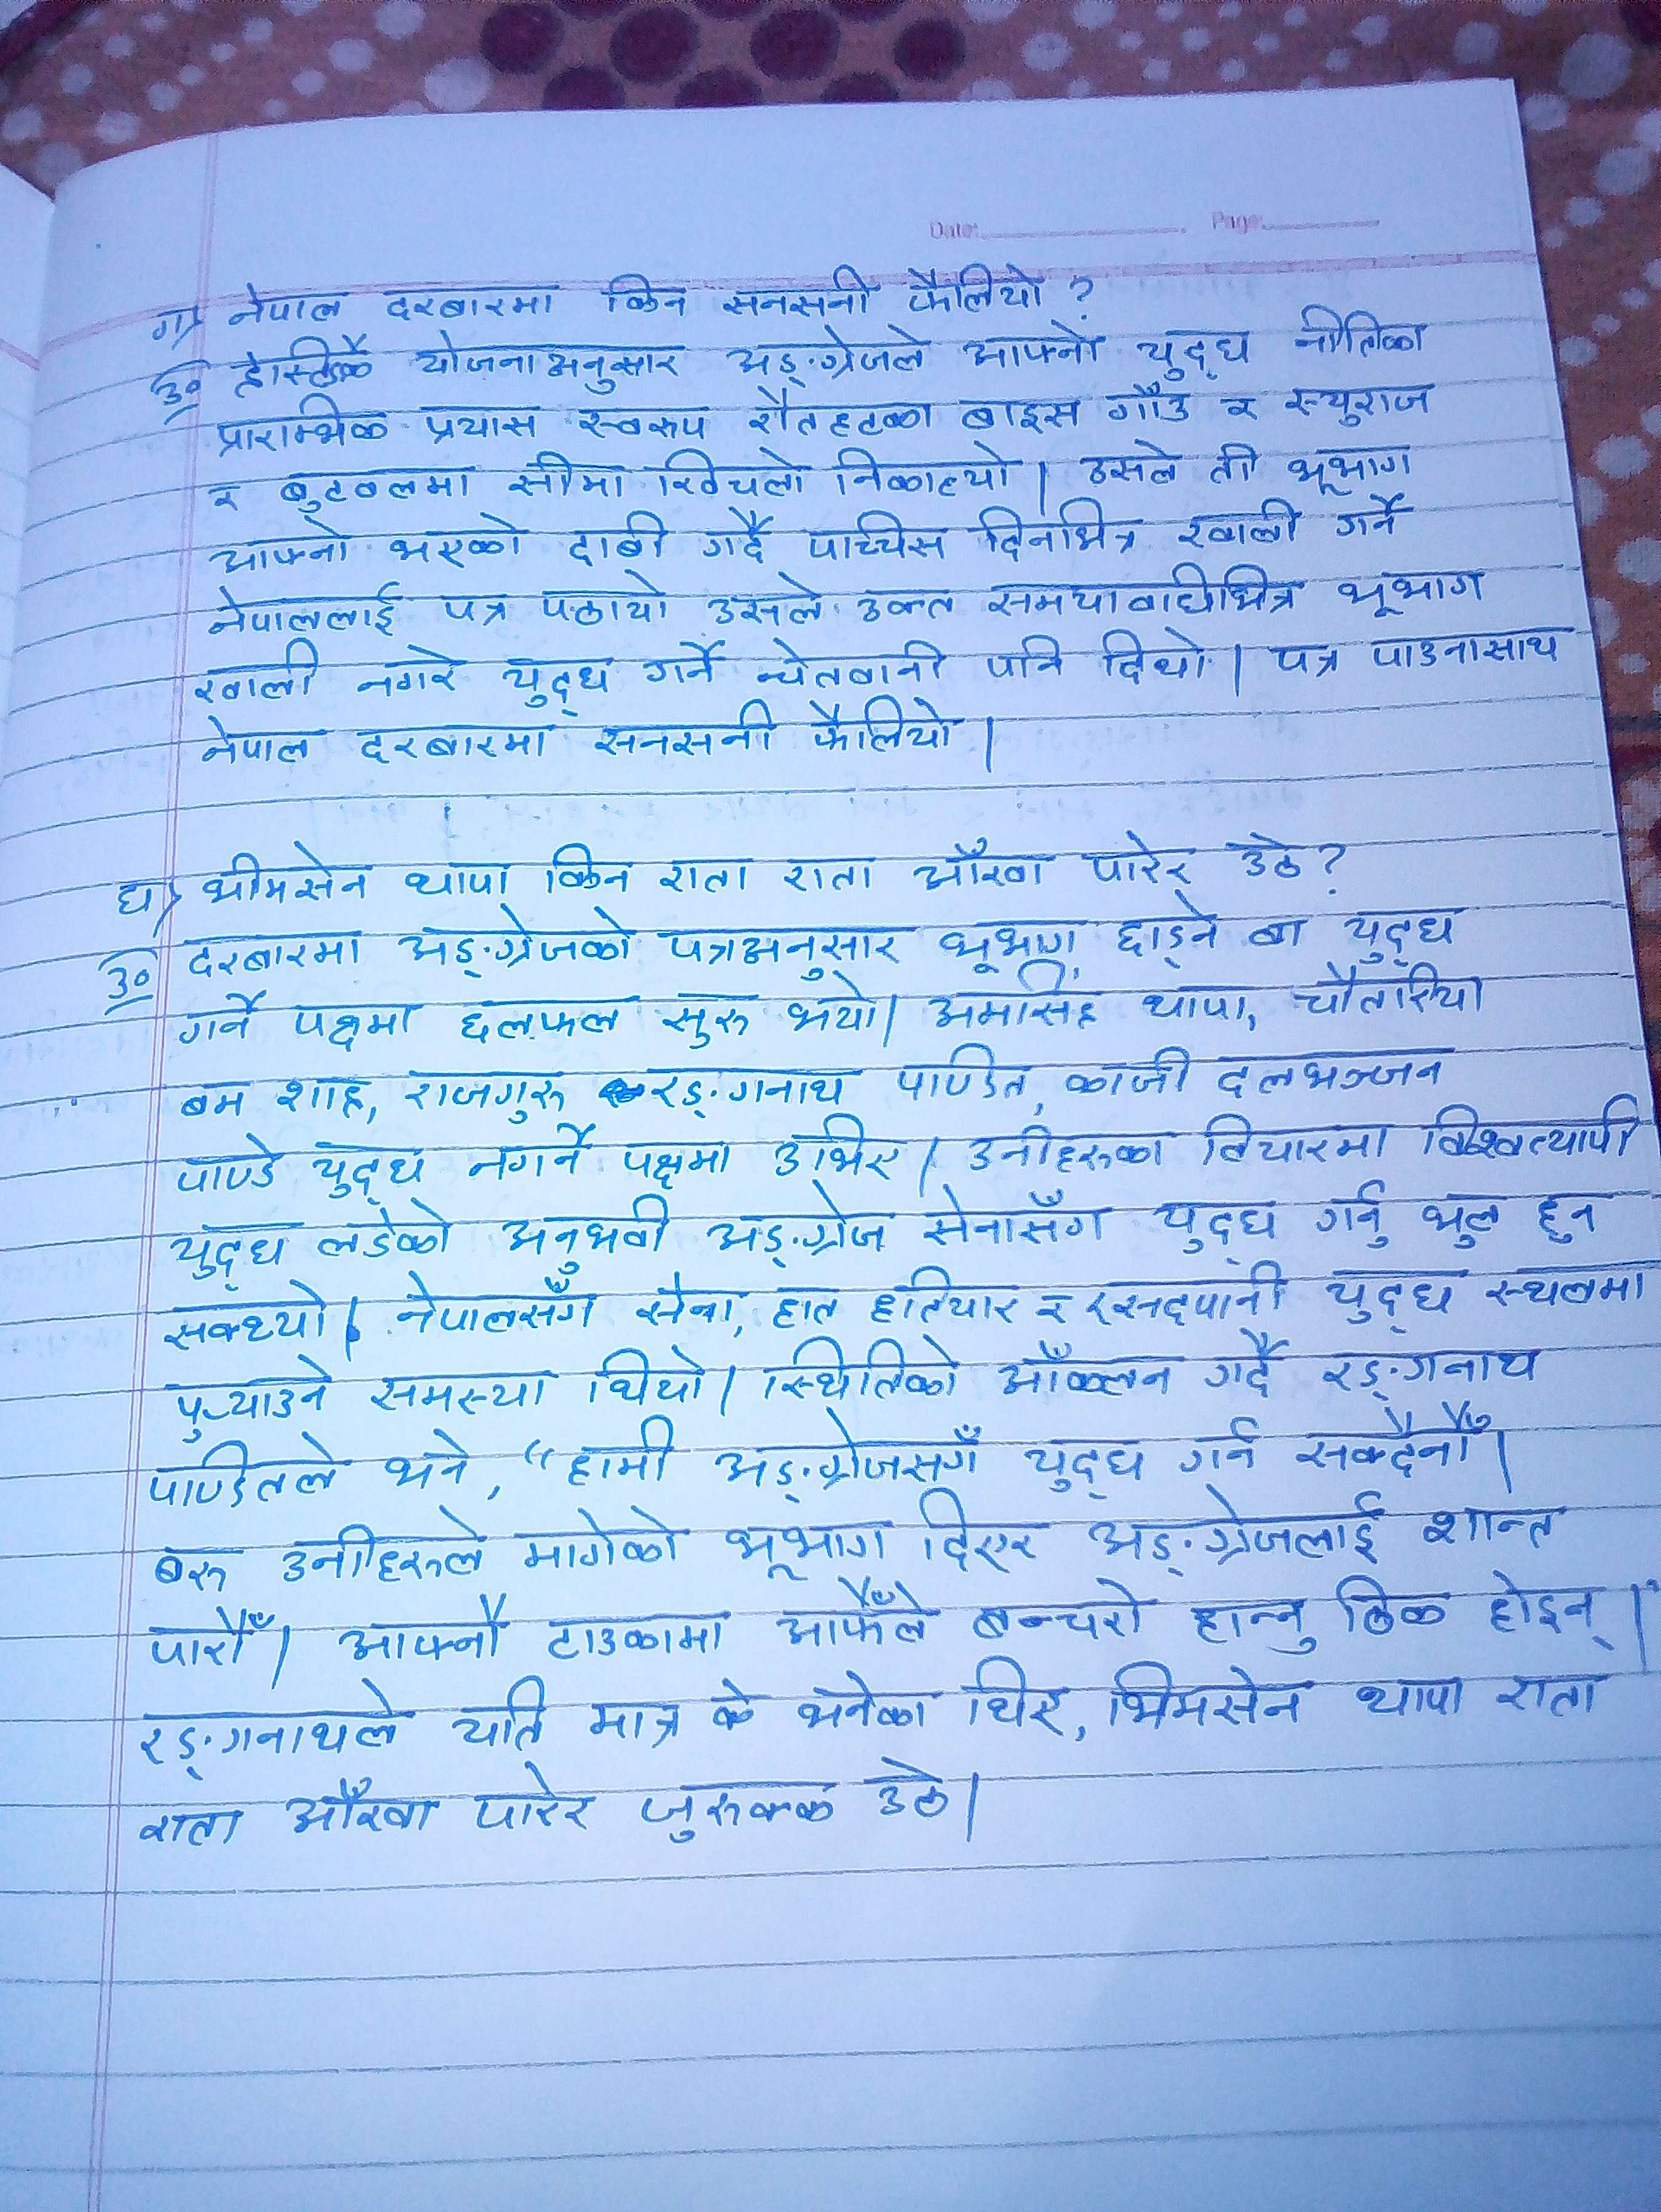 Date: Page:
ग) नेपाल दरबारमा किन सनसनी फैलियो ?
उ० हेस्टिङ्कै योजनाअनुसार अङ्ग्रेजले आफ्नो युद्ध नीतिका
प्रारम्भिक प्रयास स्वरूप रौतहटका बाइस गाँउ र स्युराज
र बुटवलमा सीमा खिचलो निकाल्यो। उसले ती भूभाग
आफ्नो भएको दाबी गर्दै पाच्चिस दिनभित्र खाली गर्ने
नेपाललाई पत्र पठायो उसले उक्त समयावाधीभित्र भूभाग
खाली नगरे युद्ध गर्ने चेतवानी पनि दियो। पत्र पाउनासाथ
नेपाल दरबारमा सनसनी फैलियो।
घ) भीमसेन थापा किन राता राता आँखा पारेर उठे ?
उ० दरबारमा अङ्ग्रेजको पत्रअनुसार भूभाग छाड्ने बा युद्ध
गर्ने पक्षमा छलफल सुरु भयो। अमरसिंह थापा, चौतारिया
बम शाह, राजगुरु रङ्गनाथ पाण्डित, काजी दलभञ्जन
पाण्डे युद्ध नगर्ने पक्षमा उभिए। उनीहरुका विचारमा विश्वव्यापी
युद्ध लडेको अनुभवी अङ्ग्रेज सेनासँग युद्ध गर्नु भुल हुन
सक्थ्यो। नेपालसँग सेना, हात हतियार र रसदपानी युद्ध स्थलमा
पुर्‍याउने समस्या थियो। स्थितिको आँकलन गर्दै रङ्गनाथ
पाण्डितले भने, “हामी अङ्ग्रेजसगँ युद्ध गर्न सक्दैनौँ।
बरु उनीहरुले मागेको भूभाग दिएर अङ्ग्रेजलाई शान्त
पारौँ। आफ्नौ टाउकामा आफैँले बन्चरो हान्नु ठिक होइन्।"
रङ्गनाथले यति मात्र के भनेका थिए, भिमसेन थापा राता
राता आँखा पारेर जुरुक्क उठे।